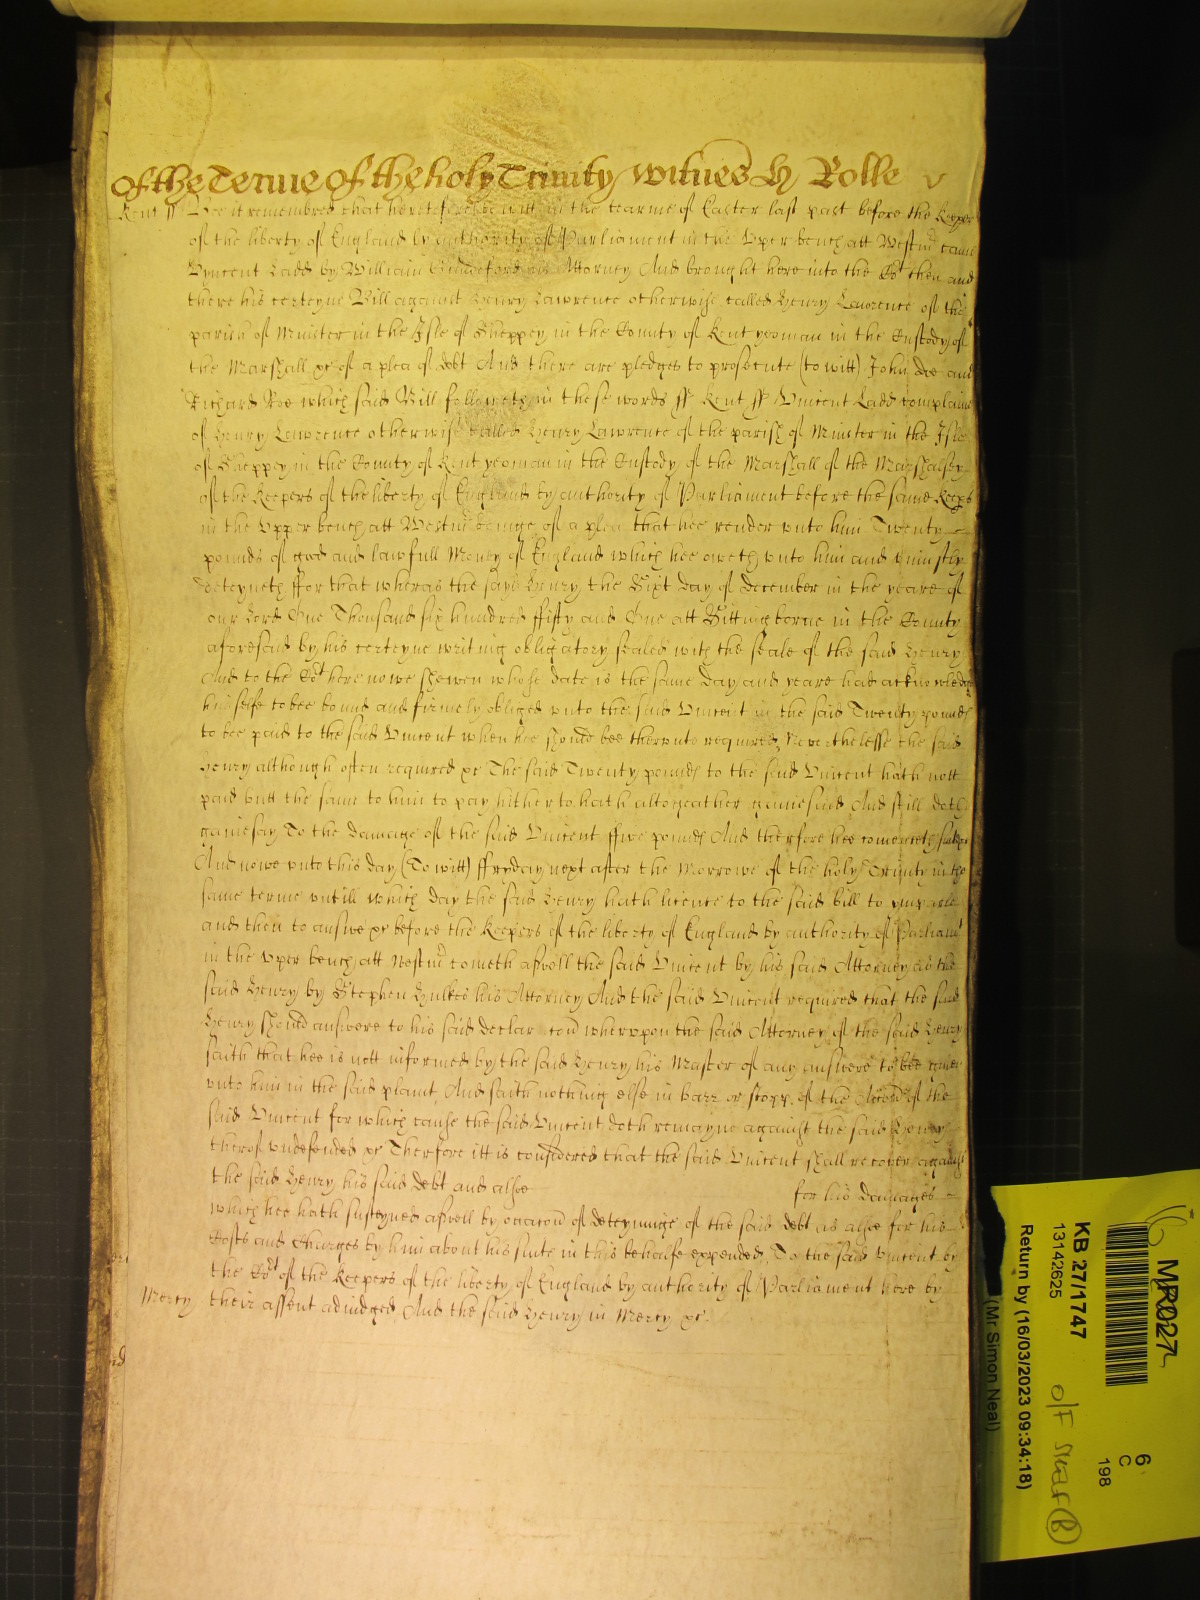 Of the Terme Of the holy Trinity witnes H Rolle
Kent ss Bee it remembred that heretofore to witt in the tearme of Easter last past before the Keepers
of the liberty of England by authority of Parliament in the Vper bench att Westmr came
Vyncent Ladd by William his Attorney And brought here into the Cort then and
there his certeyne Bill against Henry Lawrence otherwise called Henry Lawrence of the
parish of Minster in the Isle of Sheppey in the County of Kent yeoman in the Custody of
the Marshall &c of a plea of debt And there are pledges to prosecute (to witt) John doe and
Richard Roe which said Bill followeth in these words ss Kent ss Vincent Ladd complaines
of Henry Lawrence otherwise called Henry Lawrence of the parish of Minster in the Isle
of Sheppey in the County of Kent yeoman in the Custody of the Marshall of the Marshalsey
of the Keepers of the liberty of England by authority of Parliament before the same Keeps
in the Vpper bench att Westmr beinge of a plea that hee render vnto him Twenty
pounds of good and lawfull Money of England which hee oweth vnto him and vniustly
deteyneth ffor that wheras the sayd Henry the Sixt day of december in the yeare of
our Lord One Thousand six hundred ffifty and One att Sittingborne in the County
aforesaid by his certeyne writing obligatory sealed with the seale of the said Henry
And to the Cort here nowe shewen whose date is the same day and yeare had acknowledged
himselfe to bee bound and firmely obliged vnto the said Vincent in the said Twenty pounds
to bee paid to the said Vincent when hee should bee therunto required, Neverthelesse the said
Henry although often required &c The said Twenty pounds to the said Vincent hath nott
paid butt the same to him to pay hitherto hath altogeather gainesaid And still doth
gainesay To the damage of the said Vincent ffive pounds And therfore hee
And nowe vnto this day (To witt) ffryday next after the Morrowe of the holy Trinity in the
same terme vntill which day the said Henry hath licence to the said bill to
and then to answe &c before the Keepers of the liberty of England by authority of Parliamt
in the vper bench att Westmr cometh aswell the said Vincent by his said Attorney as the
said Henry by Stephen Hulkes his Attorney And the said Vincent required that the said
Henry should answere to his said declaracon wherupon the said Attorney of the said Henry
saith that hee is nott informed by the said Henry his Master of any answere to bee given
vnto him in the said plaint And saith nothing else in barr or stopp of the Accon of the
said Vincent for which cause the said Vincent doth remayne against the said Henry
therof vndefended &c Therfore itt is considered that the said Vincent shall recover against
the said Henry his said debt and alsoe for his damages
which hee hath susteyned aswell by occacon of deteyninge of the said debt as alsoe for his
Costs and Charges by him about his suite in this behalfe expended, To the said Vincent by
the Cort of the Keepers of the liberty of England by authority of Parliament here by
Mercy their assent adiudged And the said Henry in Mercy &c.
MR027
KB 27/1747
13142625
Return by (16/03/2023 09:34:18)
(Mr Simon Neal)
6
C
198